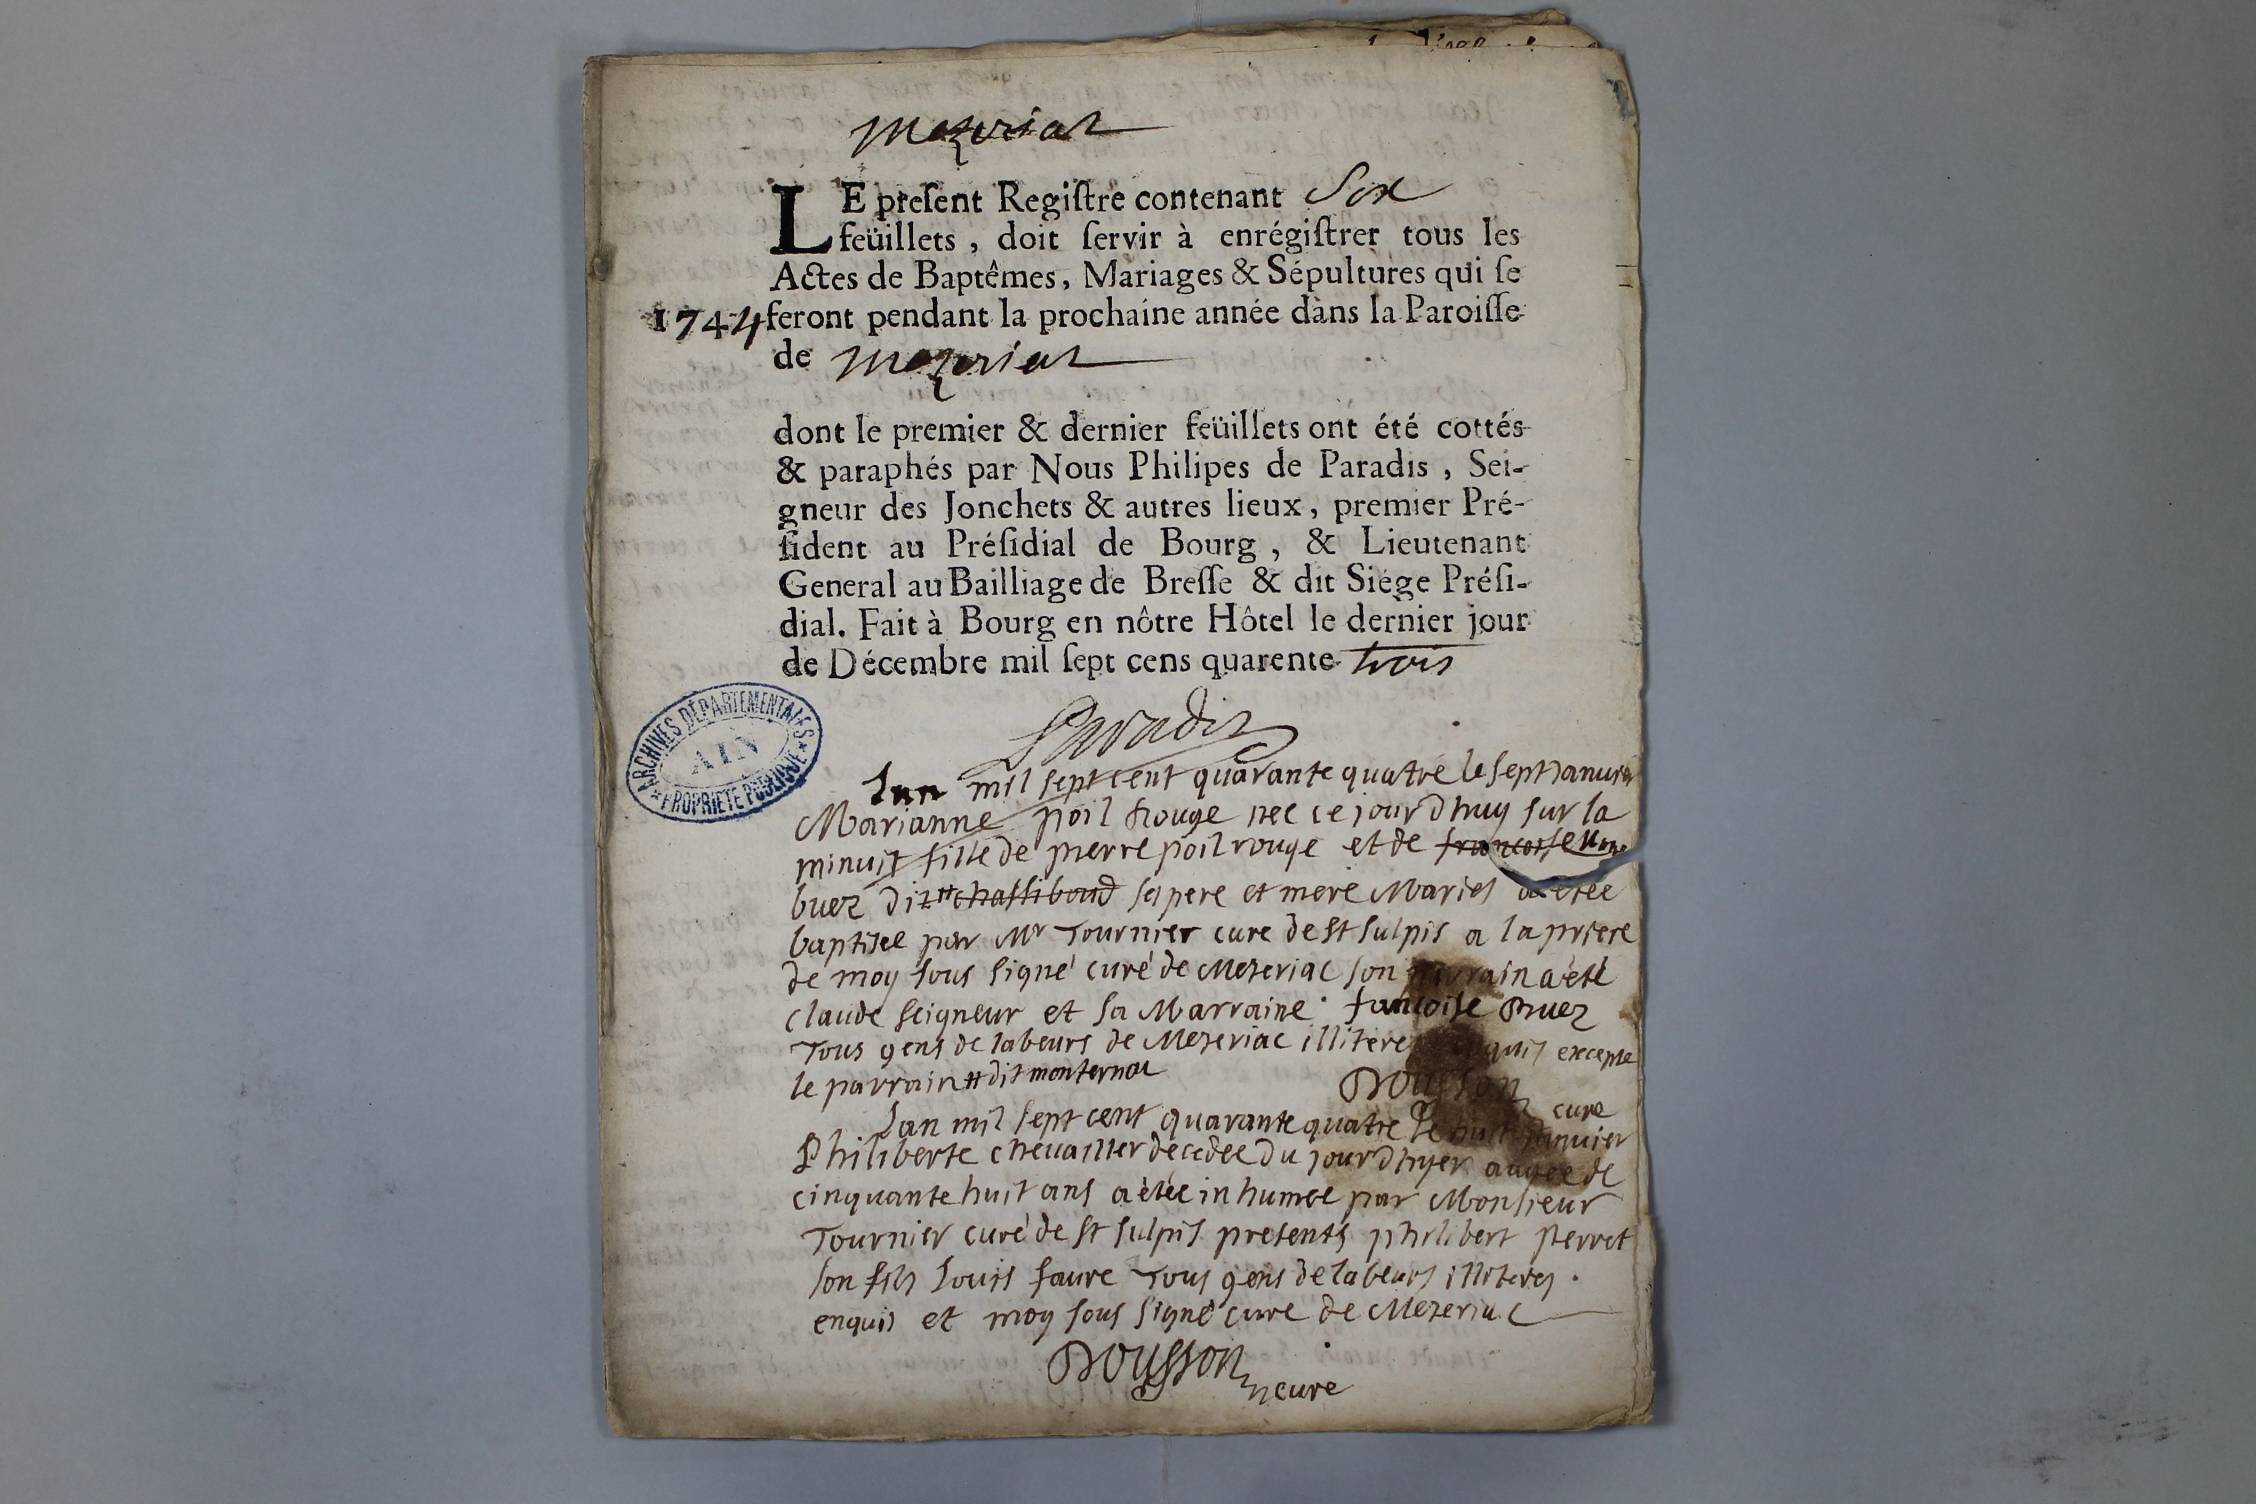 Mezeriat
LE preſent Regiſtre contenant Six
feüillets, doit ſervir à enrégiſtrer tous les
Actes de Baptêmes, Mariages & Sépultures qui ſe
1744 feront pendant la prochaine année dans la Paroiſſe
de Mezeriat
dont le premier & dernier feüillets ont été cottés
& paraphés par Nous Philipes de Paradis, Sei-
gneur des Jonchets & autres lieux, premier Pré-
ſident au Préſidial de Bourg, & Lieutenant
General au Bailliage de Breſſe & dit Siége Préſi-
dial. Fait à Bourg en nôtre Hôtel le dernier jour
de Décembre mil ſept cens quarente trois
Paradis
ARCHIVES DÉPARTEMENTALES
AIN
PROPRIÉTÉ PUBLIQUE
Lan mil sept cent quarante quatre le sept Janvier
Marianne poil rouge nee ce jourdhuy sur la
minuit fille de pierre poil rouge et de
buez dit # chassiboud ses pere et mere Mariés a étée
baptisee par Mr Tournier cure de st sulpis a la priere
de moy sous signé curé de Mezeriac son parrain a été
claude seigneur et sa Marraine francoise Bruez
Tous gens de labeurs de Mezeriac illiteres enquis excepte
le parrain # dit monternot
Bousson cure
Lan mil sept cent quarante quatre le huit Janvier
Philiberte chevallier decedee du jourdhyer augee de
cinquante huit ans a étée inhumee par Monsieur
Tournier curé de st sulpis presents philibert perret
son fils Louis faure Tous gens de labeurs illiteres
enquis et moy sous signé cure de Mezeriac
Bousson cure